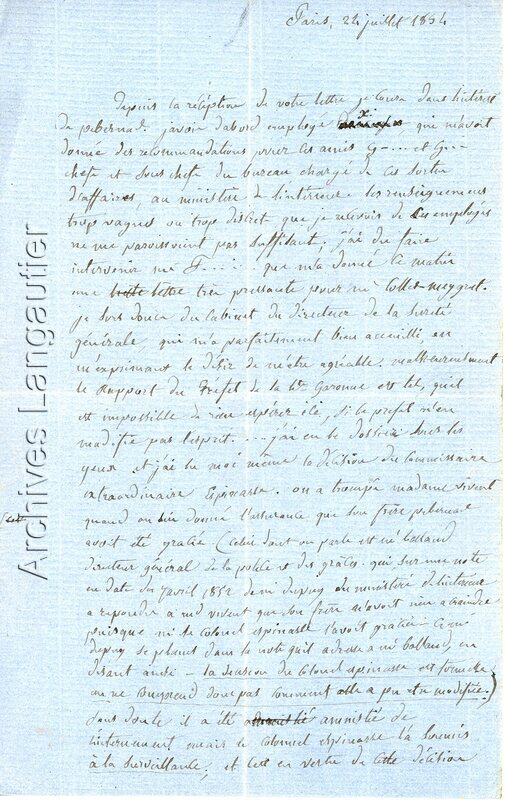 Paris, 24 juillet 1854
Depuis la réception de votre lettre je cours dans l'intérêt
de pebernad. j'avois d'abord employé X. qui m'avoit
donné des recommandations pour les amis G--- et G---
chefs et sous chefs du bureau chargé de ces sortes
d'affaires, au ministère de l'intérieur. les renseignemens
trop vagues ou trop discret que je recevois de ces employés
ne me paroissoient pas suffisant; j'ai du faire
intervenir mr F.... qui m'a donné ce matin
une lettre très pressante pour mr Collet-meygret.
je sors donc du Cabinet du directeur de la Sureté
générale, qui m'a parfaitement bien accueilli, en
m'exprimant le désir de m'être agréable. malheureusement
le Rapport du Préfet de la hte Garonne est tel, qu'il
est impossible de rien espérer ici, si le préfet n'en
modifie pas l'esprit. ... j'ai eu le dossier sous les
yeux et j'ai lu moi même la décision du Commissaire
extraordinaire Espinasse. on a trompé madame vivent
quand on lui donné l'assurance que son frère pebernad
avoit été gracié (celui dont on parle est mr balland
directeur général de la police et des grâces. qui sur une note
en date du 7 avril 1852 de mr dupuy du ministère de l'intérieur
a répondu à md vivent que son frère n'avoit rien à craindre
puisque mr le Colonel espinasse l'avoit gracié - Ce mr
dupuy se plaint dans la note qu'il adresse à mr balland, en
disant ainsi - la décision du Colonel espinasse est formelle
on ne comprend donc pas comment elle a pu etre modifiée.)
sans doute il a été amnistié de
l'internement mais le Colonel espinasse l'a soumis
à la surveillance; et c'est en vertu de cette décision
Archives Langautier